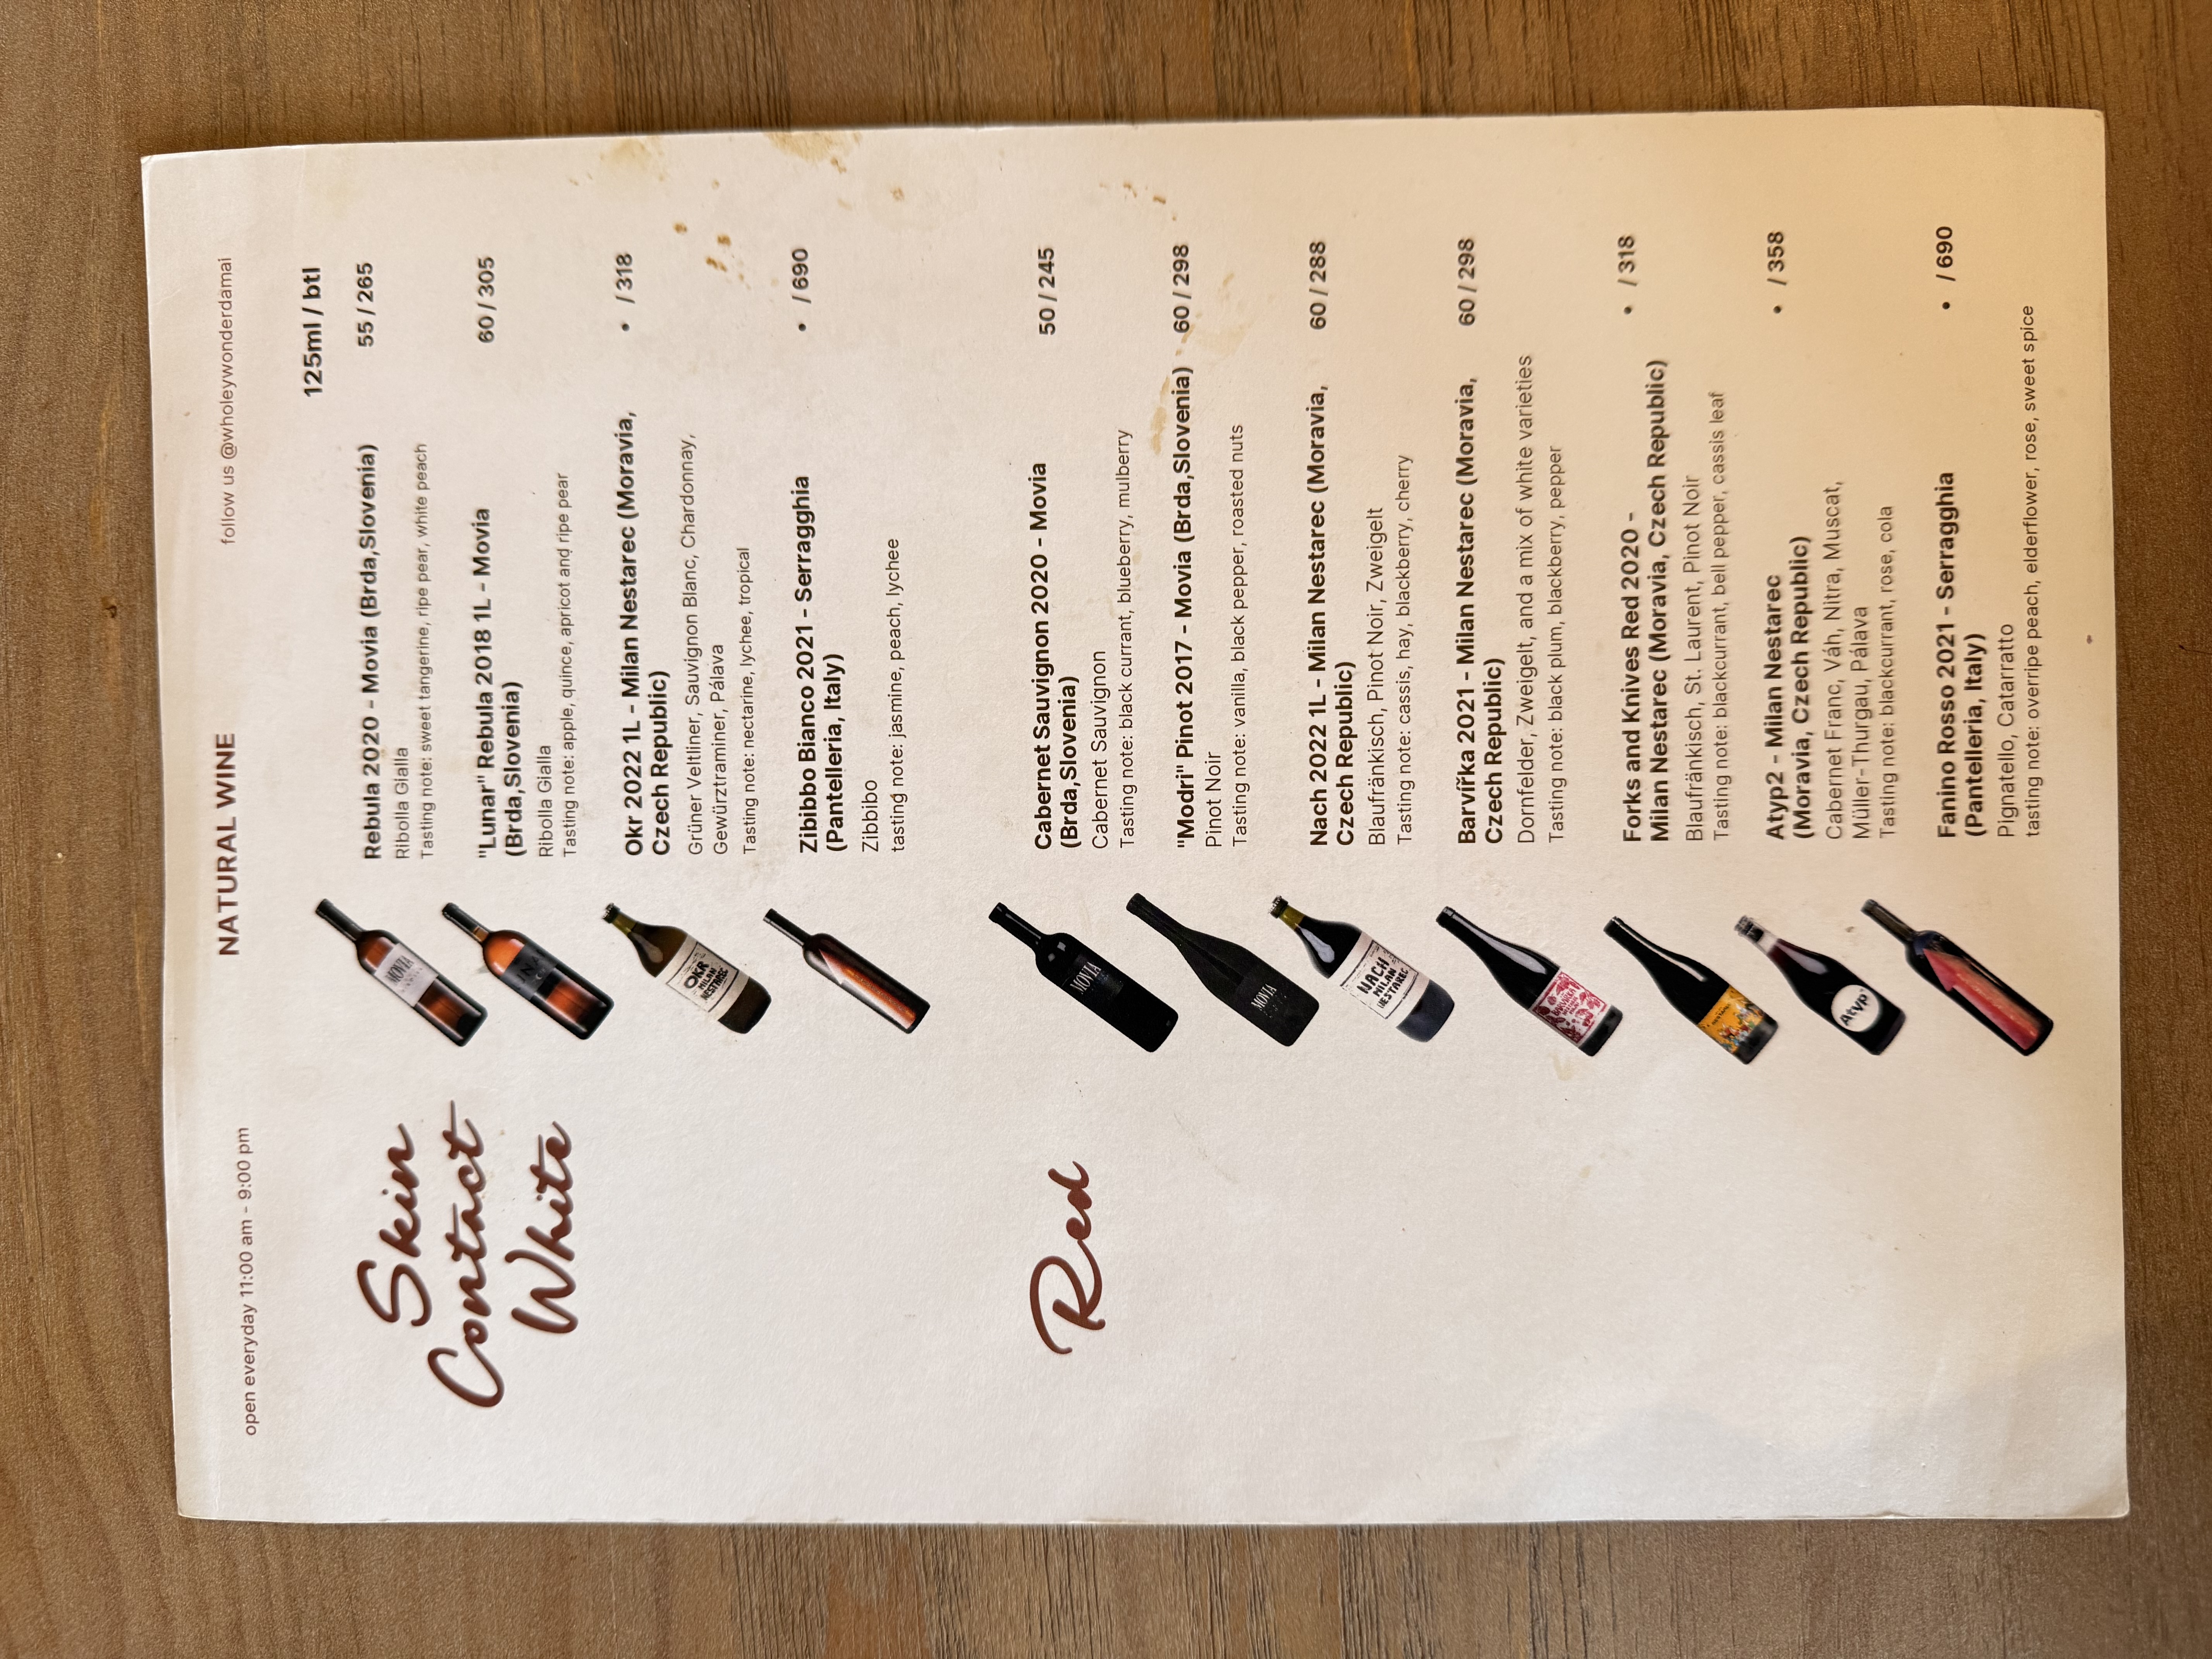 open everyday 11:00 am - 9:00 pm
NATURAL WINE
follow us @wholeywonderdamai
125ml / btl
Skin
Contact
White
Rebula 2020 - Movia (Brda,Slovenia) 55 / 265
Ribolla Gialla
Tasting note: sweet tangerine, ripe pear, white peach
"Lunar" Rebula 2018 1L - Movia 60 / 305
(Brda,Slovenia)
Ribolla Gialla
Tasting note: apple, quince, apricot and ripe pear
Okr 2022 1L - Milan Nestarec (Moravia, • / 318
Czech Republic)
Grüner Veltliner, Sauvignon Blanc, Chardonnay,
Gewürztraminer, Pálava
Tasting note: nectarine, lychee, tropical
Zibibbo Bianco 2021 - Serragghia • / 690
(Pantelleria, Italy)
Zibbibo
tasting note: jasmine, peach, lychee
Red
Cabernet Sauvignon 2020 - Movia 50 / 245
(Brda,Slovenia)
Cabernet Sauvignon
Tasting note: black currant, blueberry, mulberry
"Modri" Pinot 2017 - Movia (Brda,Slovenia) 60 / 298
Pinot Noir
Tasting note: vanilla, black pepper, roasted nuts
Nach 2022 1L - Milan Nestarec (Moravia, 60 / 288
Czech Republic)
Blaufränkisch, Pinot Noir, Zweigelt
Tasting note: cassis, hay, blackberry, cherry
Barvířka 2021 - Milan Nestarec (Moravia, 60 / 298
Czech Republic)
Dornfelder, Zweigelt, and a mix of white varieties
Tasting note: black plum, blackberry, pepper
Forks and Knives Red 2020 - • / 318
Milan Nestarec (Moravia, Czech Republic)
Blaufränkisch, St. Laurent, Pinot Noir
Tasting note: blackcurrant, bell pepper, cassis leaf
Atyp2 - Milan Nestarec • / 358
(Moravia, Czech Republic)
Cabernet Franc, Váh, Nitra, Muscat,
Müller-Thurgau, Pálava
Tasting note: blackcurrant, rose, cola
Fanino Rosso 2021 - Serragghia • / 690
(Pantelleria, Italy)
Pignatello, Catarrato
tasting note: overripe peach, elderflower, rose, sweet spice
MOVIA
OKR
MILAN
NESTAREC
MOVIA
MOVIA
NACH
MILAN
NESTAREC
Atyp